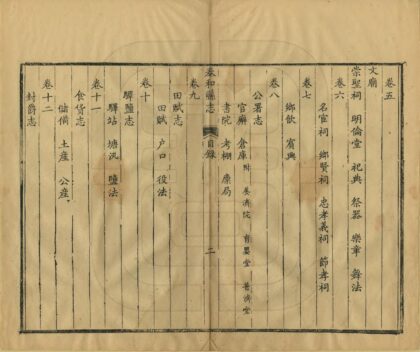 卷五
文廟
崇聖祠 明倫堂 祀典 祭器 樂章 舞法
卷六
名宦祠 鄉賢祠 忠孝義祠 節孝祠
卷七
鄉飲 賓興
卷八
公署志
官廨 倉庫 附 養濟院 育嬰堂 普濟堂
書院 考棚 藥局
泰和縣志 目錄 二
卷九
田賦志
田賦 户口 役法
卷十
驛鹽志
驛站 塘汛 鹽法
卷十一
食貨志
儲備 土產 公產
卷十二
封爵志